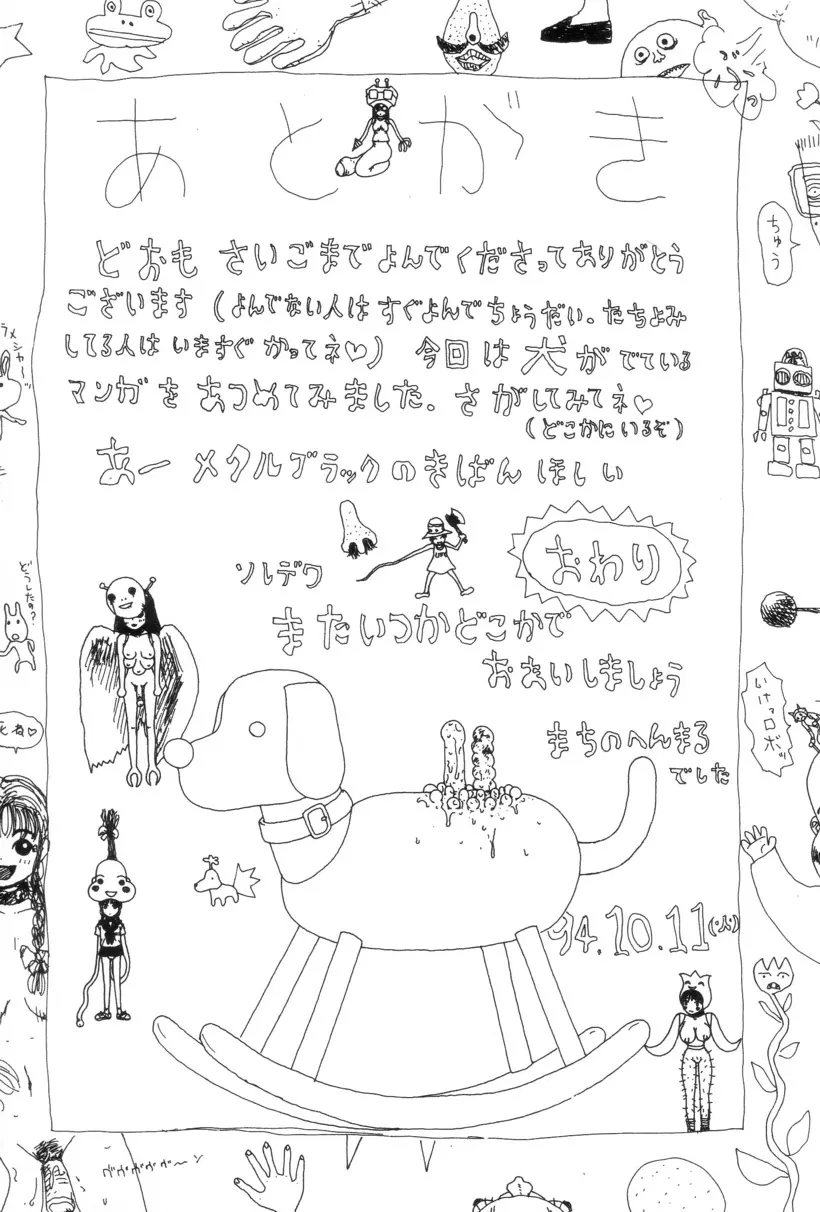 あとがき
どおも さいごまでよんでくださってありがとう
ございます（よんでない人はすぐよんでちょうだい．たちよみ
してる人はいますぐかってネ♡） 今回は犬がでている
マンガをあつめてみました．さがしてみてネ♡
（どこかにいるぞ）
あー メタルブラックのきばんほしい
おわり
ソレデワ
またいつかどこかで
おあいしましょう
まちのへんまる
でした
94.10.11(火)
ちゅう
どうしたの？
いけっロボッ
死ね♡
ヴヴヴヴヴ〜ン